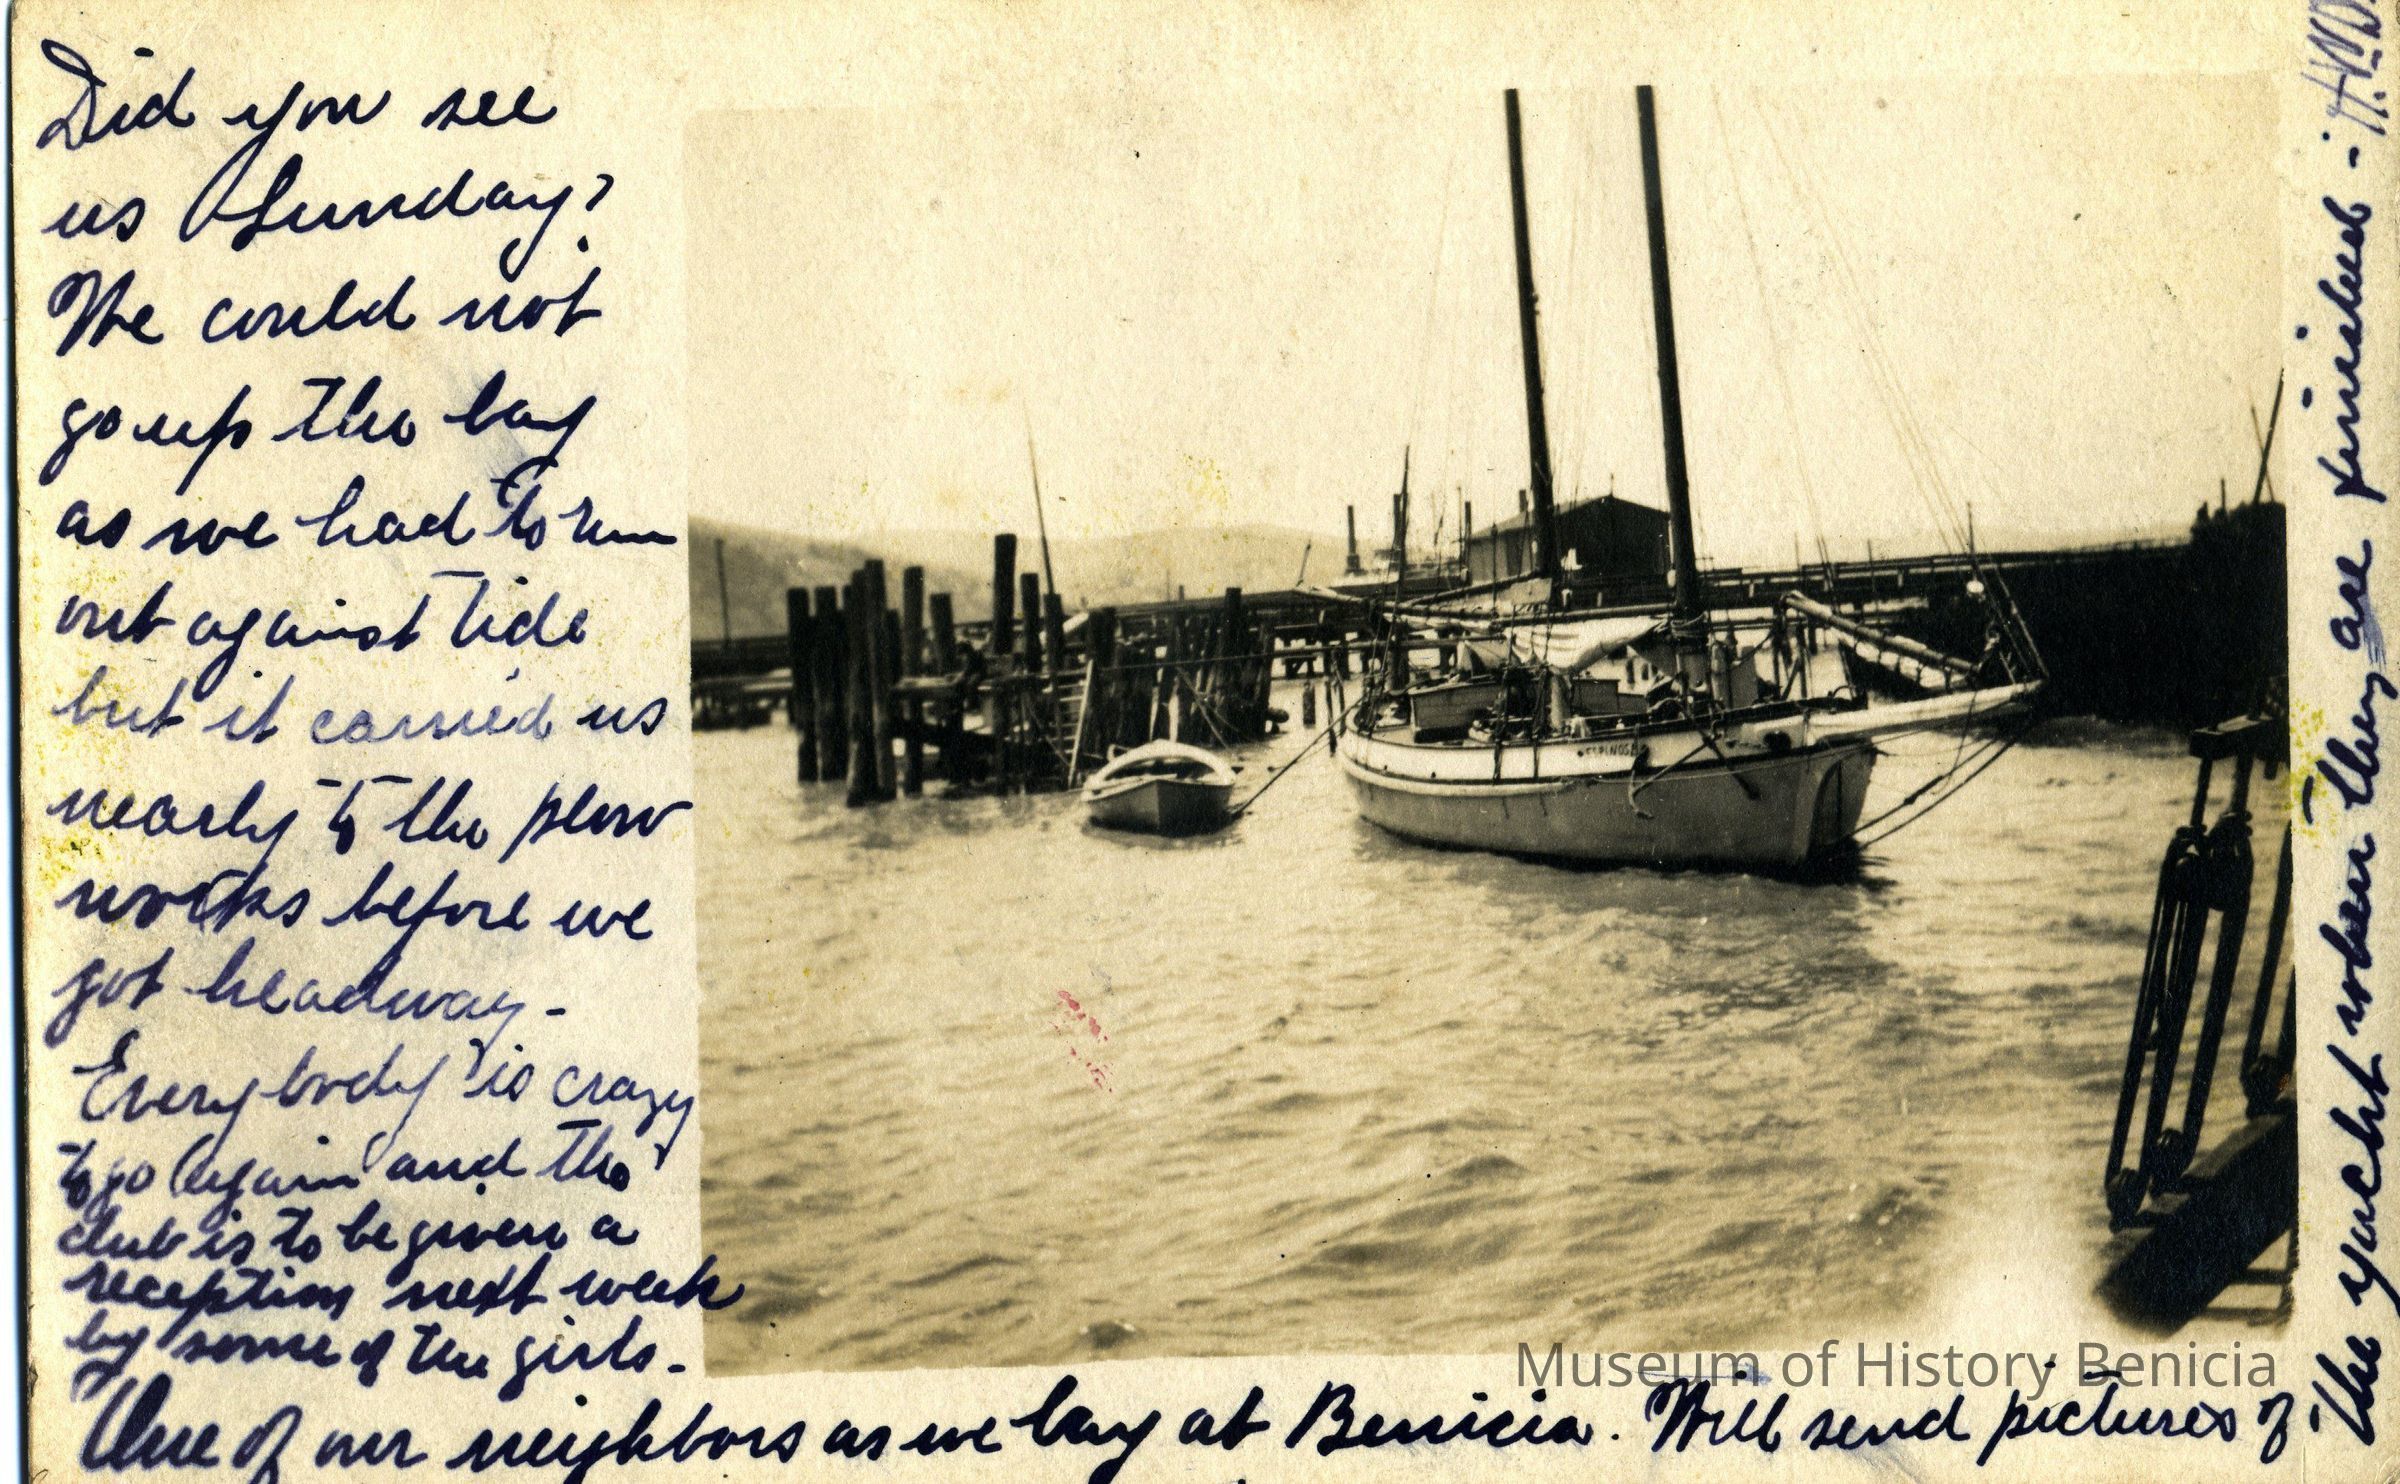 Did you see
us Sunday?
We could not
go up the bay
as we had to run
out against tide
but it carried us
nearly to the plow
works before we
got headway -
Everybody is crazy
to go again and the
club is to be given a
reception next week
by some of the girls -
One of our neighbors as we lay at Benicia. Will send pictures of
the yacht when they are finished -
ESPINOSA
Museum of History Benicia